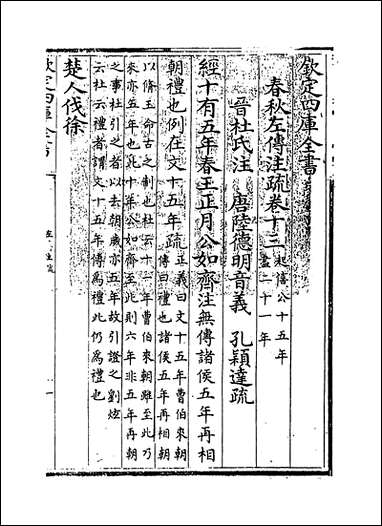 欽定四庫全書
春秋左傳注疏卷十三
起僖公十五年
盡二十一年
晉杜氏注　唐陸德明音義　孔穎達疏
經十有五年春王正月公如齊注無傳諸侯五年再相
朝禮也例在文十五年疏
正義曰文十五年曹伯來朝
傳曰禮也諸侯五年再相朝
以脩王命古之制也杜云十一年曹伯來朝雖至此乃
來亦五年也此十年公如齊至此則六年非五年再朝
之事杜引之者以去朝歲亦五年故引證之劉炫
云杜云禮者謂文十五年傳為禮此仍為禮也
楚人伐徐
欽定四庫全書